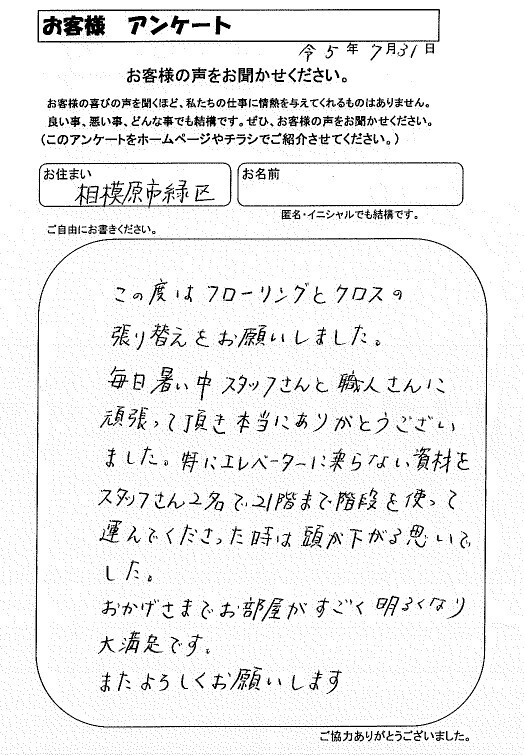 お客様 アンケート
令5年7月31日
お客様の声をお聞かせください。
お客様の喜びの声を聞くほど、私たちの仕事に情熱を与えてくれるものはありません。
良い事、悪い事、どんな事でも結構です。ぜひ、お客様の声をお聞かせください。
(このアンケートをホームページやチラシでご紹介させてください。)
お住まい
相模原市緑区
お名前
匿名・イニシャルでも結構です。
ご自由にお書きください。
この度はフローリングとクロスの
張り替えをお願いしました。
毎日暑い中スタッフさんと職人さんに
頑張って頂き本当にありがとうござい
ました。特にエレベーターに乗らない資材を
スタッフさん2名で21階まで階段を使って
運んでくださった時は頭が下がる思いで
した。
おかげさまでお部屋がすごく明るくなり
大満足です。
またよろしくお願いします
ご協力ありがとうございました。